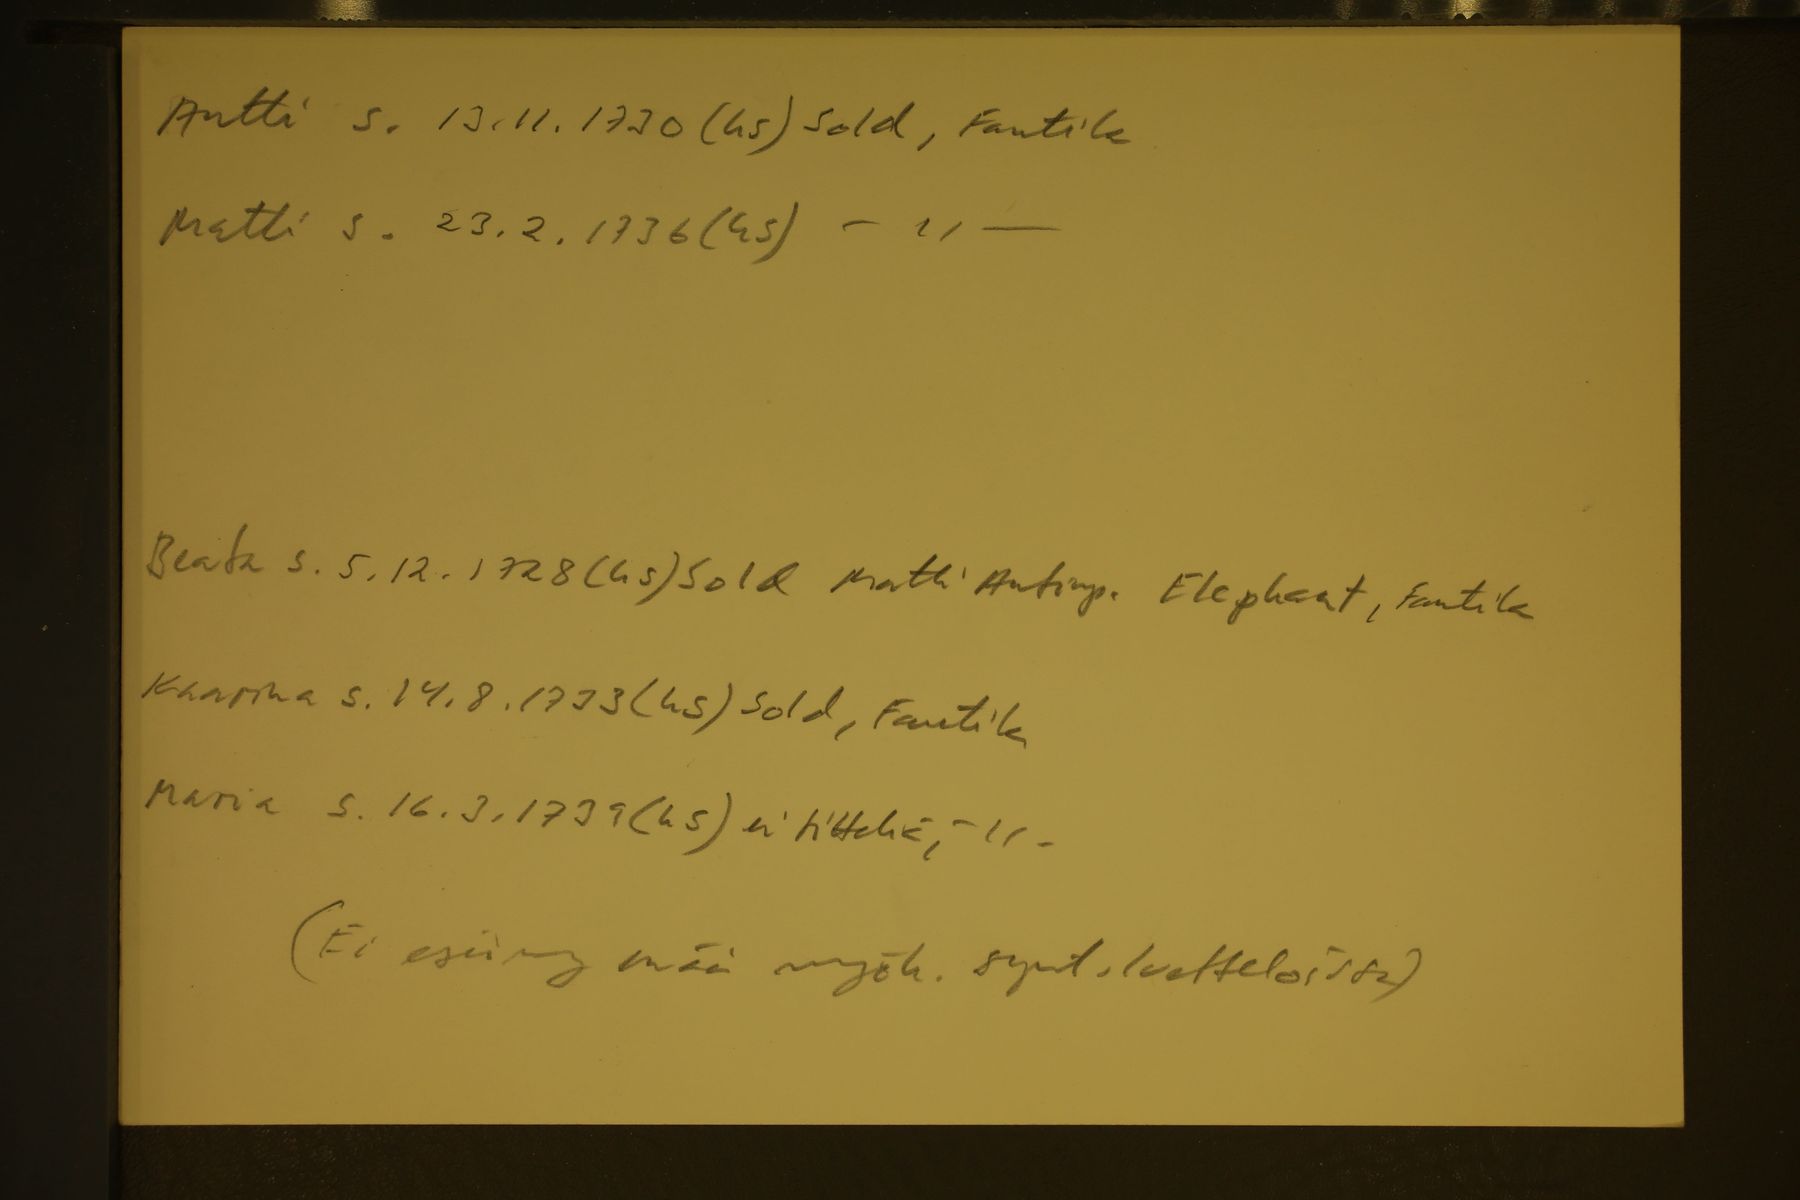 Antti s. 13.11.1730 (hs) Sold, Fantik
Matti s. 23.2.1736 (hs) - " -
Beata s. 5.12.1728 (hs) Sold Matti Antinp. Elephant, Fantik
Kaarina s. 14.8.1733 (hs) Sold, Fantik
Maria s. 16.3.1739 (hs) ei titteliä, - " -
(Ei esiinny enää myöh. synt. luetteloissa)